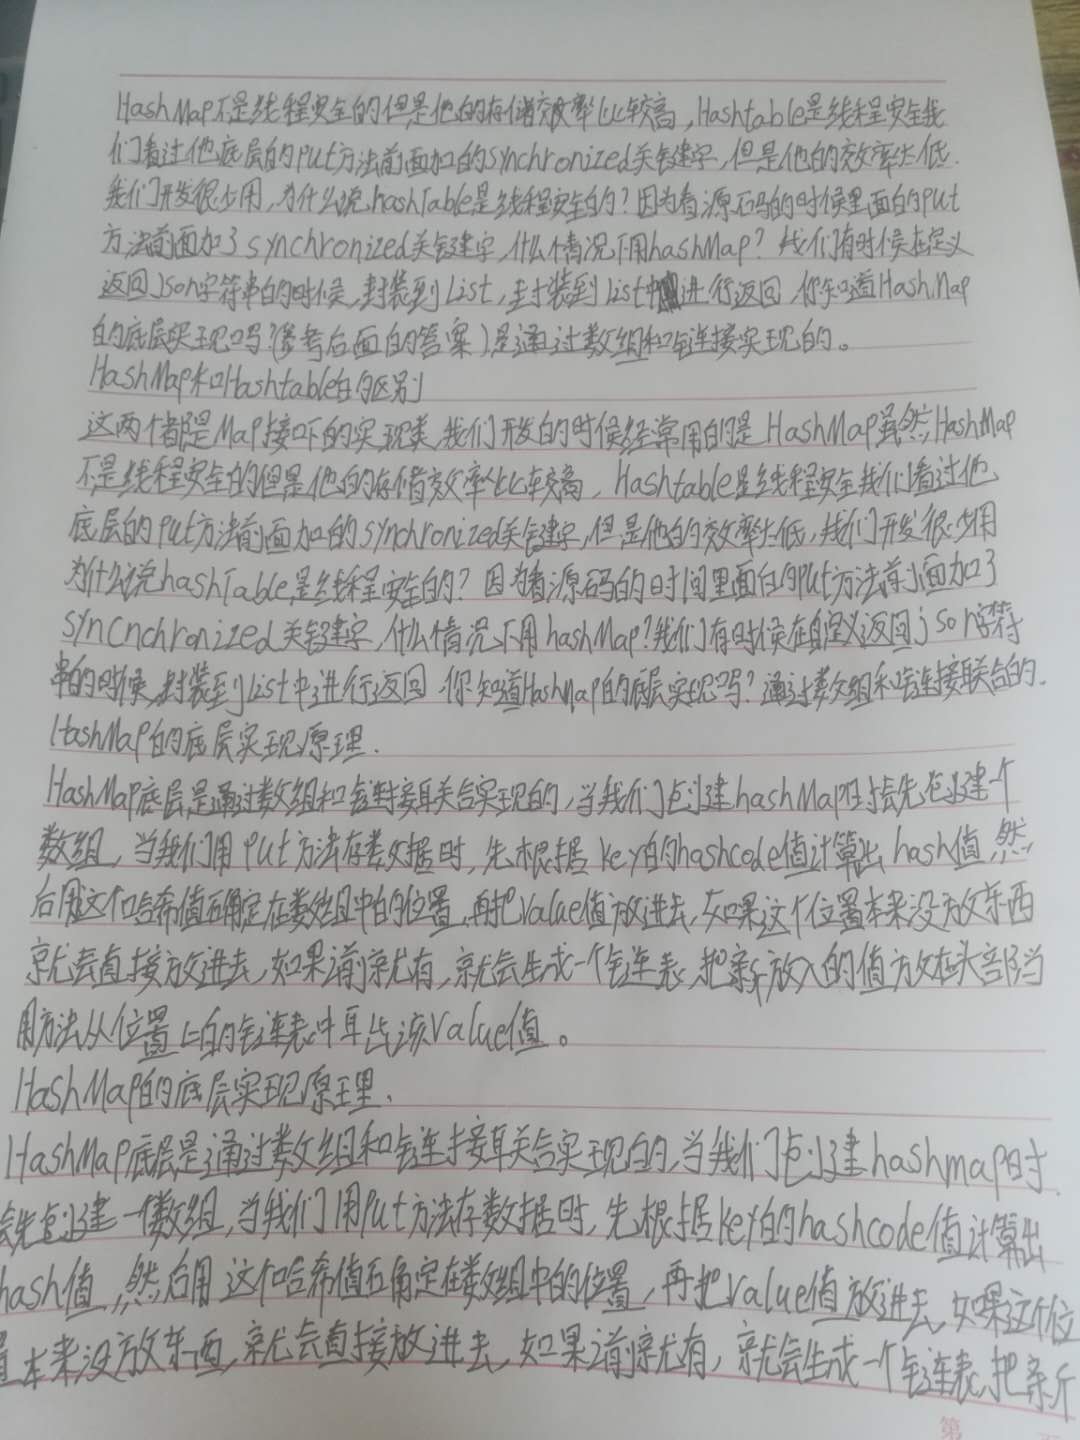 HashMap不是线程安全的但是他的存储效率比较高,Hashtable是线程安全我
们看过他底层的put方法前面加的synchronized关键字,但是他的效率太低.
我们开发很少用,为什么说hashTable是线程安全的?因为看源码的时候里面的put
方法前面加了synchronized关键字,什么情况下用hashMap?我们有时候在定义
返回Json字符串的时候,封装到List,封装到List中进行返回,你知道HashMap
的底层实现吗?(参考后面的答案)是通过数组和链接实现的。
HashMap和Hashtable的区别
这两个都是Map接口下的实现类,我们开发的时候经常用的是HashMap虽然HashMap
不是线程安全的但是他的存储效率比较高,Hashtable是线程安全我们看过他
底层的put方法前面加的synchronized关键字,但是他的效率太低,我们开发很少用
为什么说hashTable是线程安全的?因为看源码的时间里面的put方法前面加了
syncnchronized关键字,什么情况下用hashMap?我们有时候在自定义返回json字符
串的时候,封装到List中进行返回,你知道HashMap的底层实现吗?通过数组和链接联合的.
HashMap的底层实现原理.
HashMap底层是通过数组和链接联合实现的,当我们创建hashMap时会先创建一个
数组,当我们用put方法存数据时,先根据key的hashcode值计算出hash值,然
后用这个哈希值确定在数组中的位置,再把value值放进去,如果这个位置本来没放东西
就会直接放进去,如果之前就有,就会生成一个链表,把新放入的值放在头部,当
用方法从位置上的链表中取出该value值。
HashMap的底层实现原理.
HashMap底层是通过数组和链连接联合实现的,当我们创建hashmap时
会先创建一个数组,当我们用put方法存数据时,先根据key的hashcode值计算出
hash值,然后用这个哈希值确定在数组中的位置,再把value值放进去,如果这个位
置本来没放东西,就会直接放进去,如果之前就有,就会生成一个链表,把新
第 页